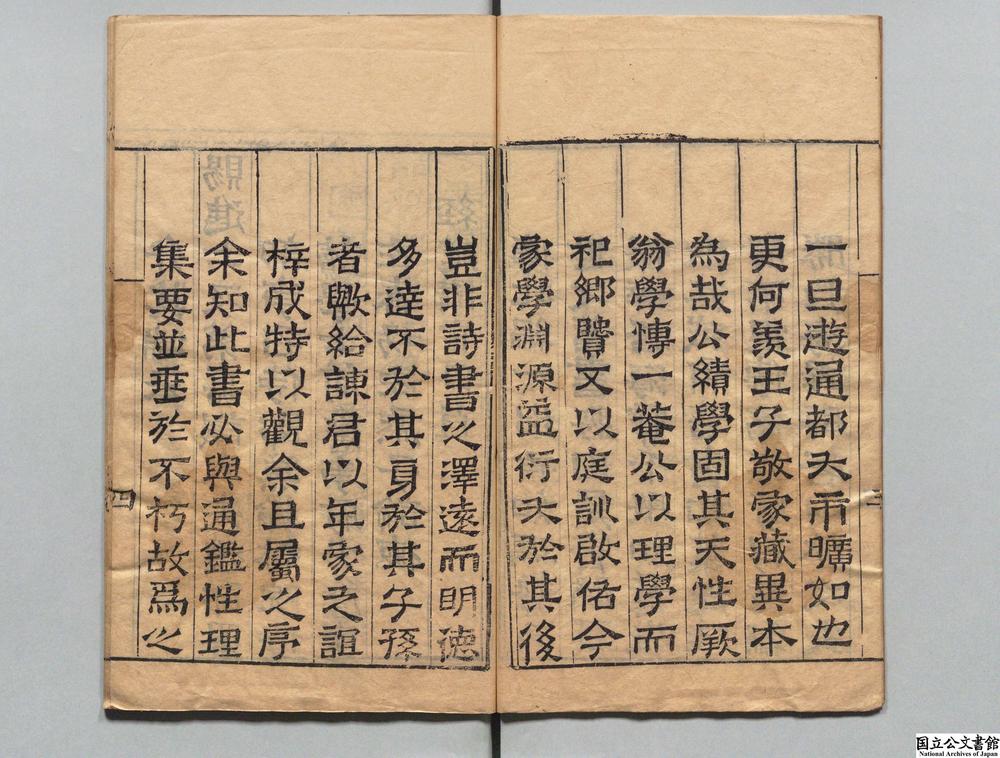 一旦遊通都大市曠如也
更何羨王子敬家藏異本
為哉公績學固其天性厥
翁學博一菴公以理學而
祀鄉賢又以庭訓啟佑今
家學淵源益衍大於其後
三
豈非詩書之澤遠而明德
多達不於其身於其子孫
者歟給諫君以年家之誼
梓成特以觀余且屬之序
余知此書必與通鑑性理
集要並垂於不朽故為之
四
国立公文書館
National Archives of Japan